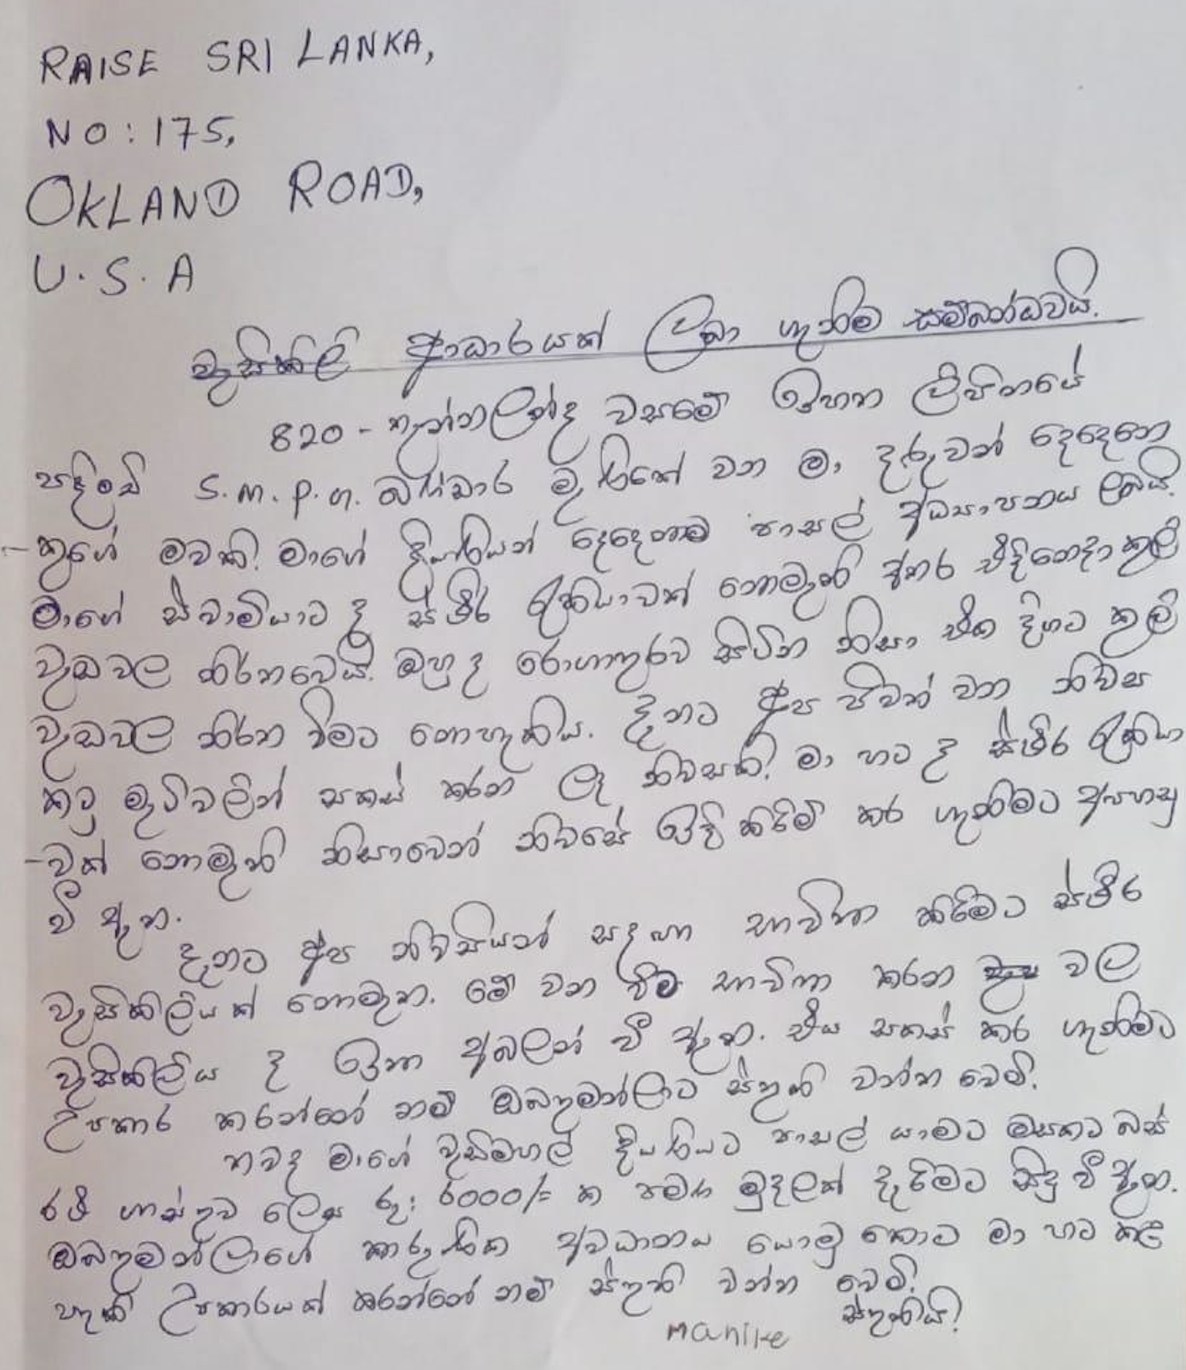 RAISE SRI LANKA,
NO: 175,
OKLAND ROAD,
U.S.A
වැසිකිලි ආධාරයක් ලබා ගැනීම සම්බන්ධවයි.
820 - තැන්නලන්ද වසමේ ඉහත ලිපිනයේ
පදිංචි S.m.p.g. බණ්ඩාර මැණිකේ වන මා, දරුවන් දෙදෙනෙ
-කුගේ මවකි. මාගේ දියණියන් දෙදෙනාම පාසල් අධ්‍යාපනය ලබයි.
මාගේ ස්වාමියාට ද ස්ථිර රැකියාවක් නොමැති අතර එදිනෙදා කුලී
වැඩවල නිරතවෙයි. ඔහු ද රෝගාතුරව සිටින නිසා එක දිගට කුලී
වැඩවල නිරත වීමට නොහැකිය. දැනට අප ජීවත් වන නිවස
කටු මැටිවලින් සකස් කරන ලද නිවසකි. මා හට ද ස්ථිර රැකියා
-වක් නොමැති නිසාවෙන් නිවසේ ඉදි කිරීම් කර ගැනීමට අපහසු
වී ඇත.
දැනට අප නිවසියන් සඳහා භාවිතා කිරීමට ස්ථිර
වැසිකිලියක් නොමැත. මේ වන විට භාවිතා කරන වල
වැසිකිලිය ද ඉතා අබලන් වී ඇත. එය සකස් කර ගැනීමට
උපකාර කරන්නේ නම් ඔබතුමන්ලාට ස්තුති වන්න වෙමි.
තවද මාගේ වැඩිමහල් දියණියට පාසල් යාමට මසකට බස්
රථ ගාස්තුව ලෙස රු: 6000/= ක පමණ මුදලක් දැරීමට සිදු වී ඇත.
ඔබතුමන්ලාගේ කාරුණික අවධානය යොමු කොට මා හට කළ
හැකි උපකාරයක් කරන්නේ නම් ස්තුති වන්න වෙමි.
ස්තුතියි!
manike